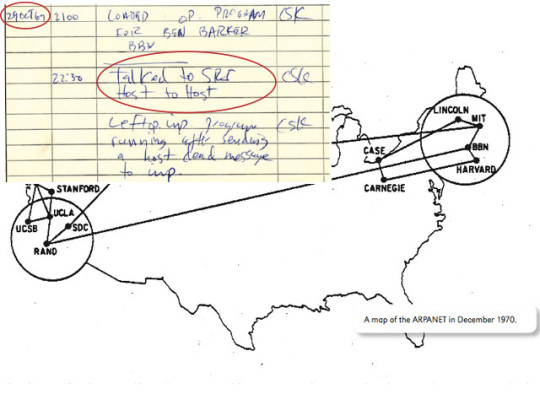 29 OCT 69 2100 LOADED OP. PROGRAM CSK
FOR BEN BARKER
BBN
22:30 Talked to SRI CSK
Host to Host
Left op. imp program CSK
running after sending
a host dead message
to imp.
LINCOLN
MIT
CASE
BBN
HARVARD
CARNEGIE
STANFORD
UCLA
UCSB
SDC
RAND
A map of the ARPANET in December 1970.